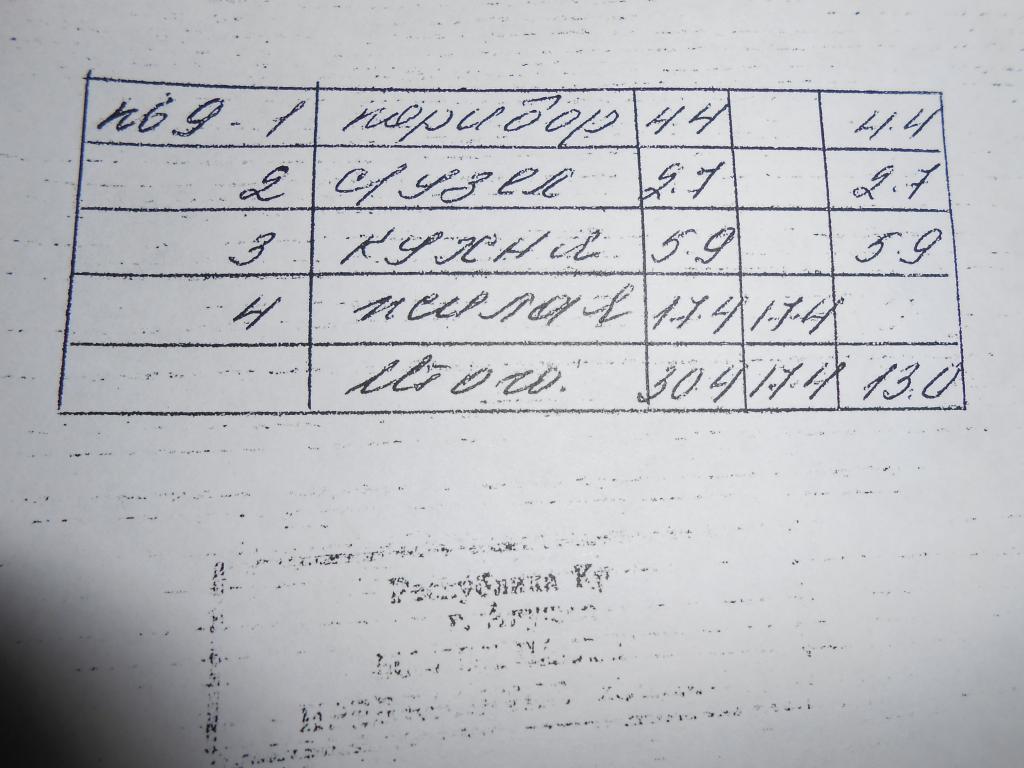 кв 9 - 1 коридор 4.4 4.4
2 с/узел 2.7 2.7
3 кухня 5.9 5.9
4 жилая 17.4 17.4
Итого. 30.4 17.4 13.0
Республика Кр
г.